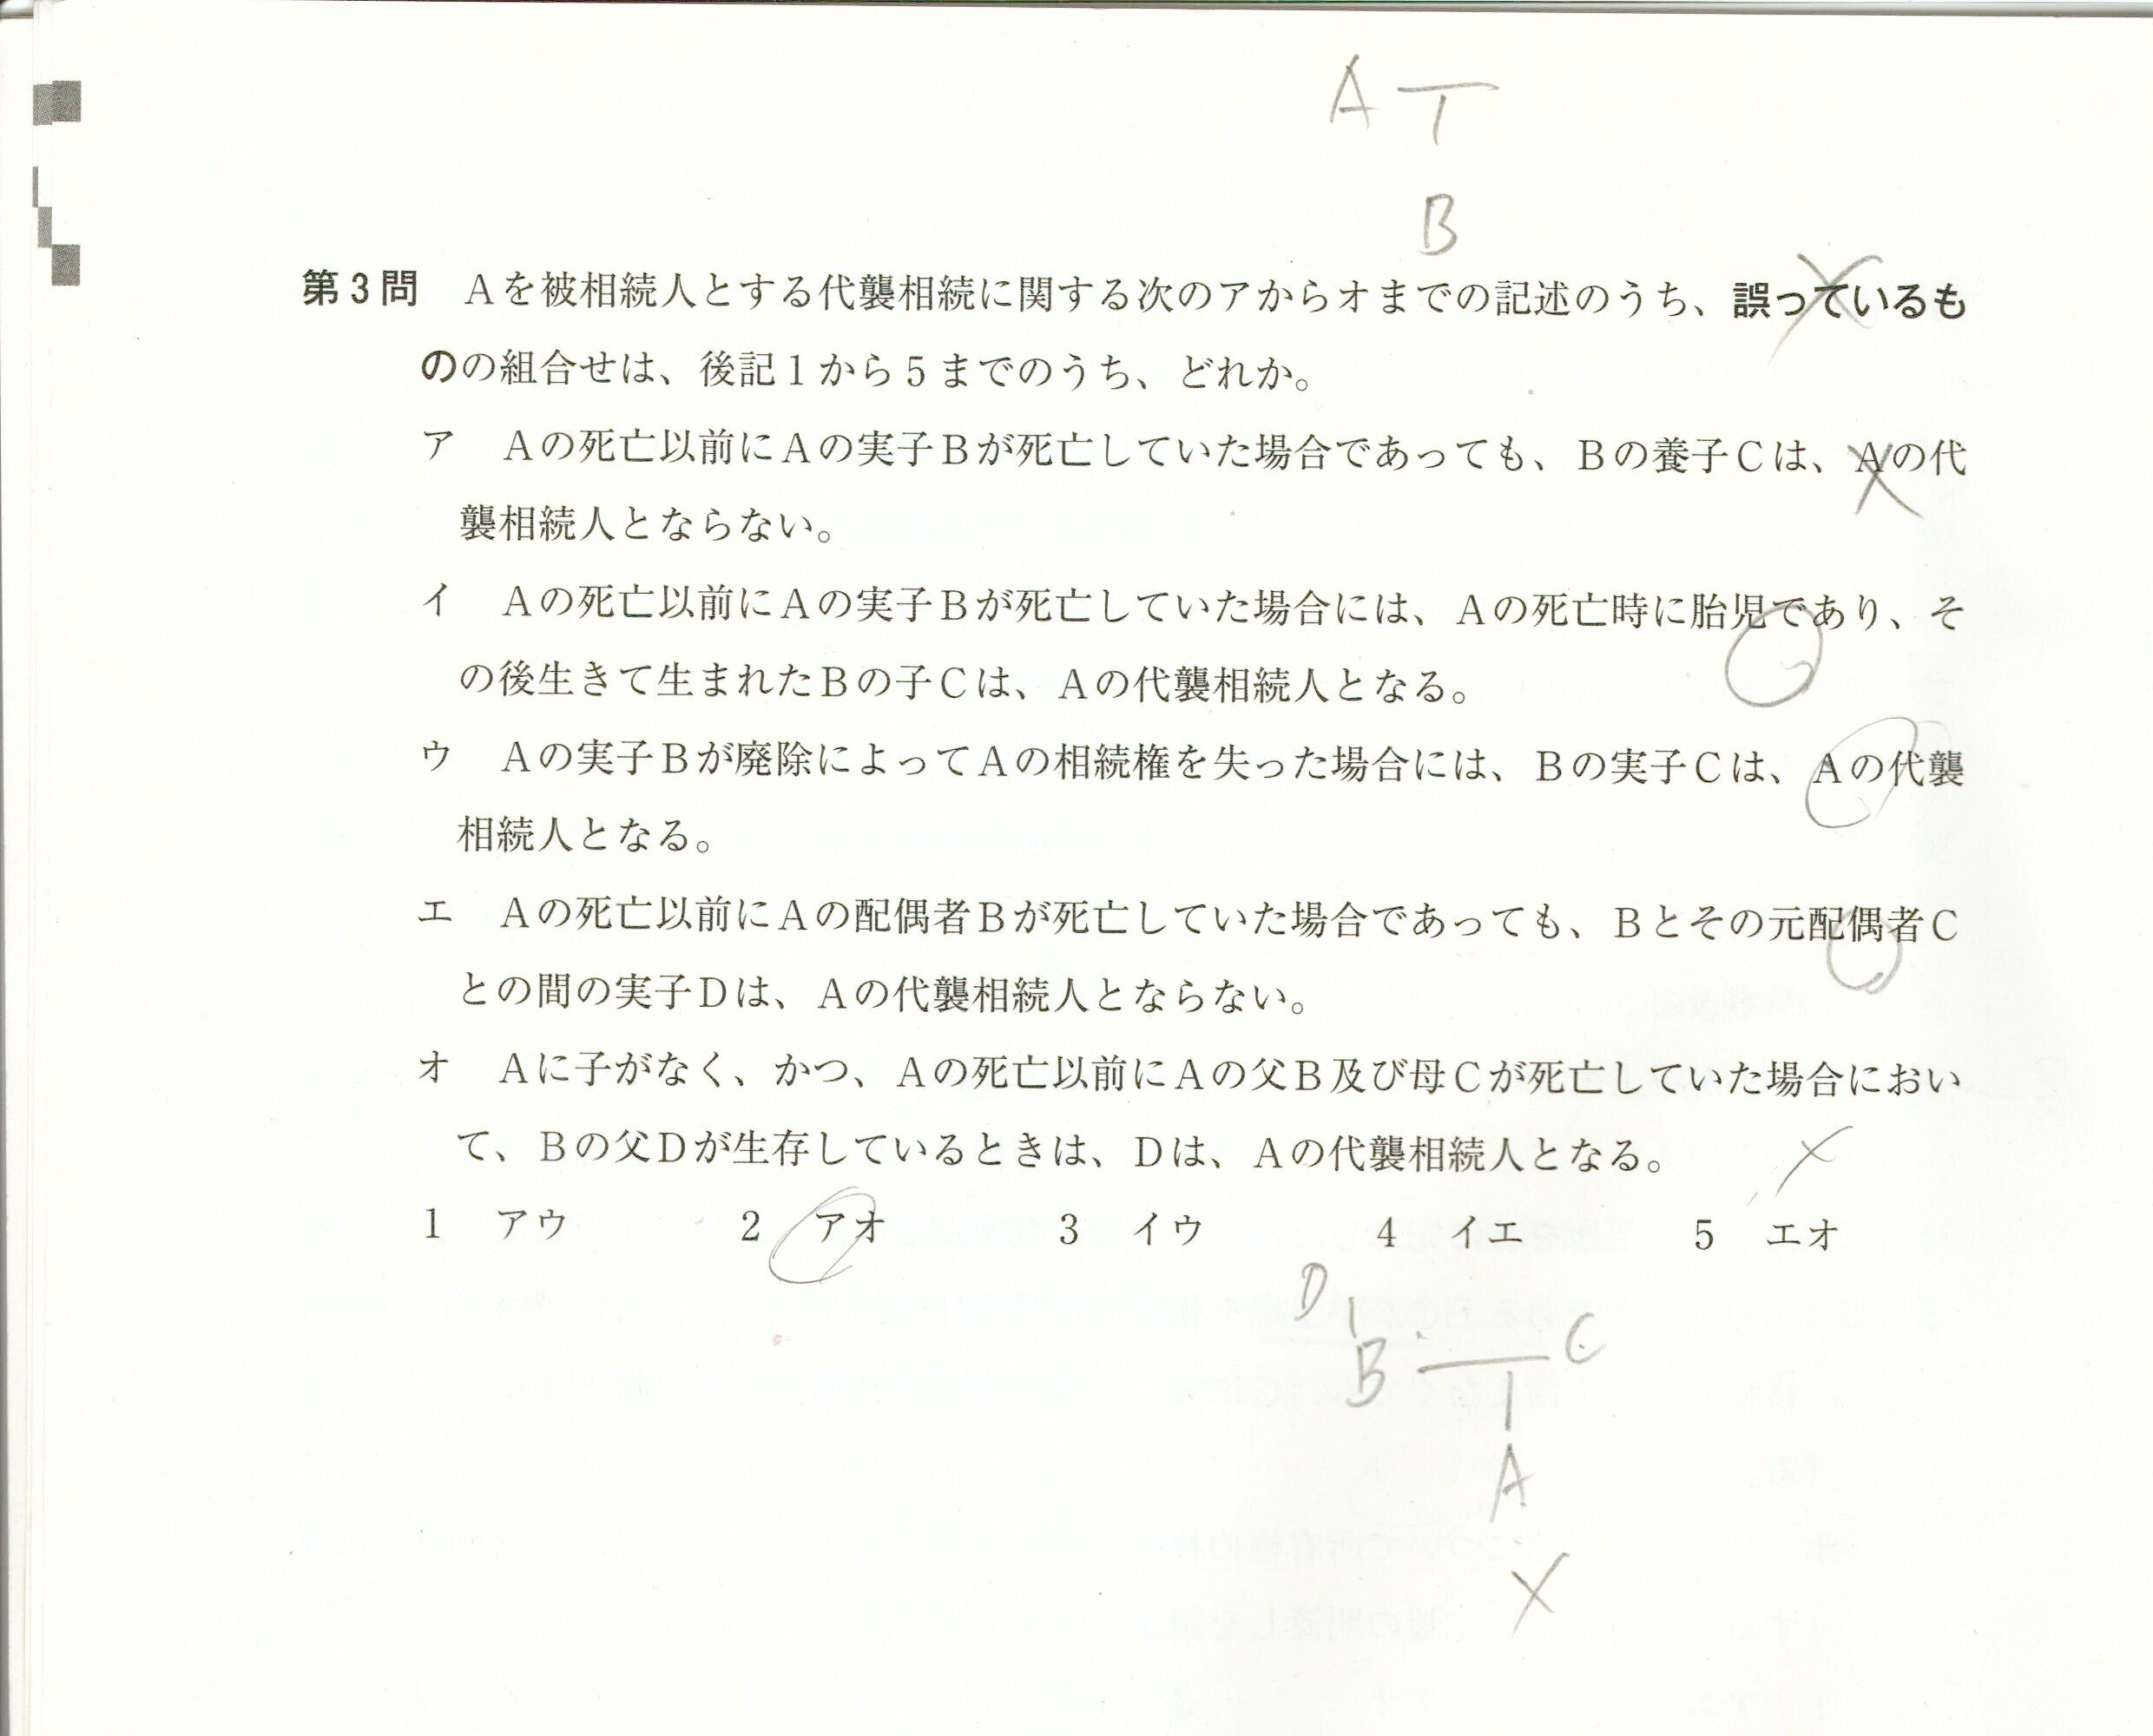 A
B
第3問　Aを被相続人とする代襲相続に関する次のアからオまでの記述のうち、誤っているも
のの組合せは、後記1から5までのうち、どれか。
ア　Aの死亡以前にAの実子Bが死亡していた場合であっても、Bの養子Cは、Aの代
襲相続人とならない。
イ　Aの死亡以前にAの実子Bが死亡していた場合には、Aの死亡時に胎児であり、そ
の後生きて生まれたBの子Cは、Aの代襲相続人となる。
ウ　Aの実子Bが廃除によってAの相続権を失った場合には、Bの実子Cは、Aの代襲
相続人となる。
エ　Aの死亡以前にAの配偶者Bが死亡していた場合であっても、Bとその元配偶者C
との間の実子Dは、Aの代襲相続人とならない。
オ　Aに子がなく、かつ、Aの死亡以前にAの父B及び母Cが死亡していた場合におい
て、Bの父Dが生存しているときは、Dは、Aの代襲相続人となる。
1　アウ　2　アオ　3　イウ　4　イエ　5　エオ
D
B C
A